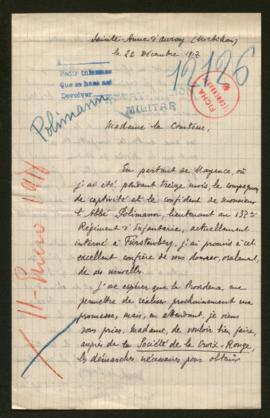 Sainte-Anne d'Auray (Morbihan)
le 22 Décembre 1917
A
Pedir informes
Que se haga así
Devolver
12126
FICHA
MILITAR
Polimann
Madame la Comtesse,
En partant de Mayence, où
j'ai été pendant treize mois le compagnon
de captivité et le confident de Monsieur
l'Abbé Polimann, Lieutenant au 137e
Régiment d'Infanterie, actuellement
interné à Fürstenberg, j'ai promis à cet
excellent confrère de vous donner, oralement,
de ses nouvelles.
J'ose espérer que la Providence me
permettra de réaliser prochainement ma
promesse, mais, en attendant, je viens
vous prier, madame, de vouloir bien faire,
auprès de la Société de la Croix-Rouge,
les démarches nécessaires pour obtenir
11-Enero 1918